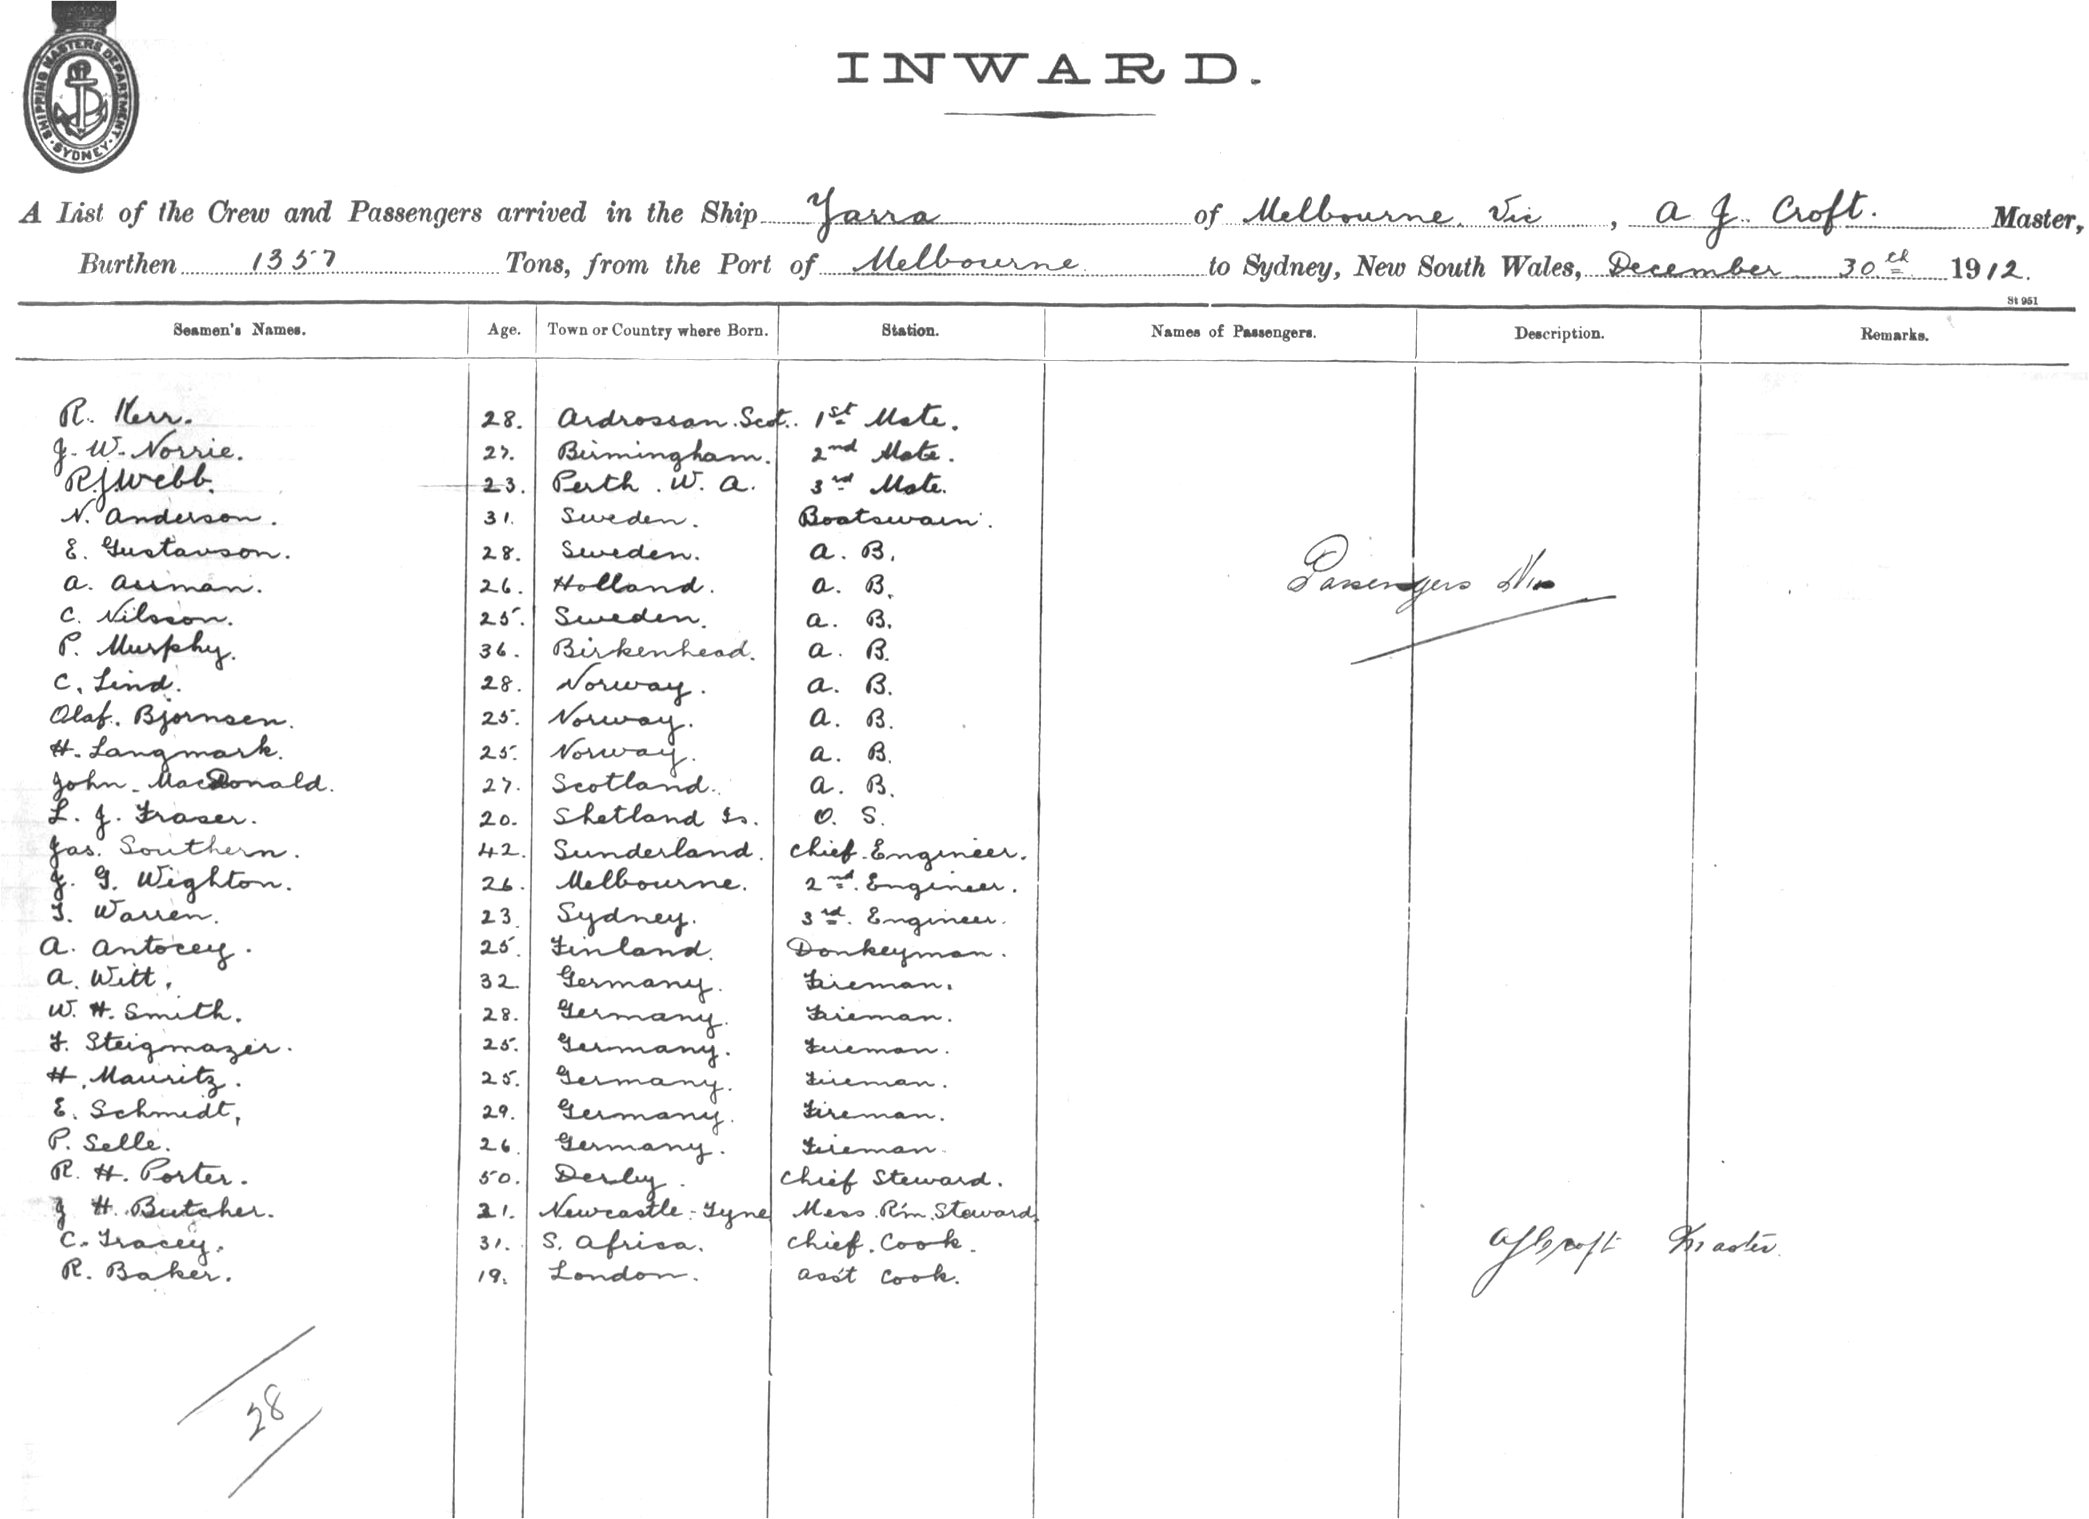 SHIPPING MASTERS DEPARTMENT
SYDNEY
INWARD.
A List of the Crew and Passengers arrived in the Ship Yarra of Melbourne. Vic, A J. Croft. Master,
Burthen 1357 Tons, from the Port of Melbourne to Sydney, New South Wales, December 30th 1912.
St 951
Seamen's Names. Age. Town or Country where Born. Station. Names of Passengers. Description. Remarks.
R. Kerr. 28. Ardrossan. Scot. 1st Mate.
J. W. Norrie. 27. Birmingham. 2nd Mate.
R J Webb. 23. Perth. W. A. 3rd Mate.
N. Anderson. 31. Sweden. Boatswain.
E. Gustavson. 28. Sweden. A. B.
A. Assman. 26. Holland. A. B.
Passengers Nil
C. Nilsson. 25. Sweden. A. B.
P. Murphy. 36. Birkenhead. A. B.
C. Lind. 28. Norway. A. B.
Olaf. Bjornsen. 25. Norway. A. B.
H. Langmark. 25. Norway. A. B.
John. MacDonald. 27. Scotland. A. B.
L. J. Fraser. 20. Shetland Is. O. S.
Jas. Southern. 42. Sunderland. Chief. Engineer.
J. G. Wighton. 26. Melbourne. 2nd. Engineer.
T. Warren. 23. Sydney. 3rd. Engineer.
A. Antocey. 25. Finland. Donkeyman.
A. Witt. 32. Germany. Fireman.
W. H. Smith. 28. Germany. Fireman.
F. Steigmazer. 25. Germany. Fireman.
H. Mauritz. 25. Germany. Fireman.
E. Schmidt. 29. Germany. Fireman.
P. Selle. 26. Germany. Fireman.
R. H. Porter. 50. Derby. Chief Steward.
J H. Butcher. 21. Newcastle-Tyne Mess. R'm. Steward.
C. Tracey. 31. S. Africa. Chief. Cook.
AJ Croft Master.
R. Baker. 19. London. Ass't Cook.
28